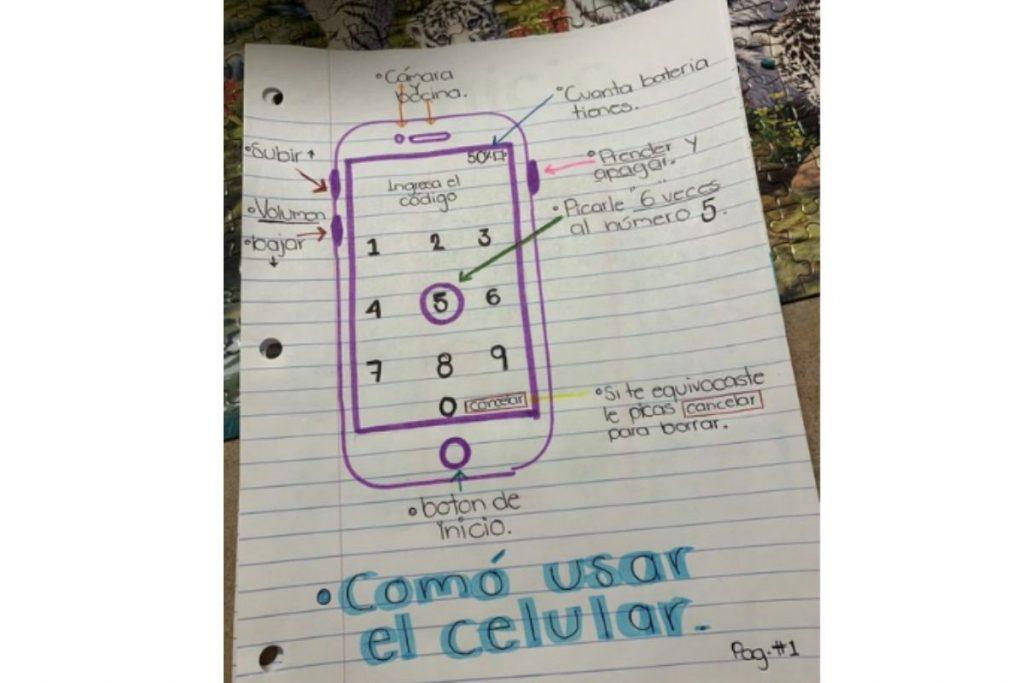 •Cámara
y
bocina.
•Cuanta bateria
tienes.
•Subir ↑
50%
•Prender y
apagar.
Ingresa el
código
•Volumen
•Picarle "6 veces"
al número 5.
•bajar
↓
1 2 3
4 5 6
7 8 9
0 cancelar
•Si te equivocaste
le picas cancelar
para borrar.
•boton de
inicio.
•Comó usar
el celular.
Pag.#1